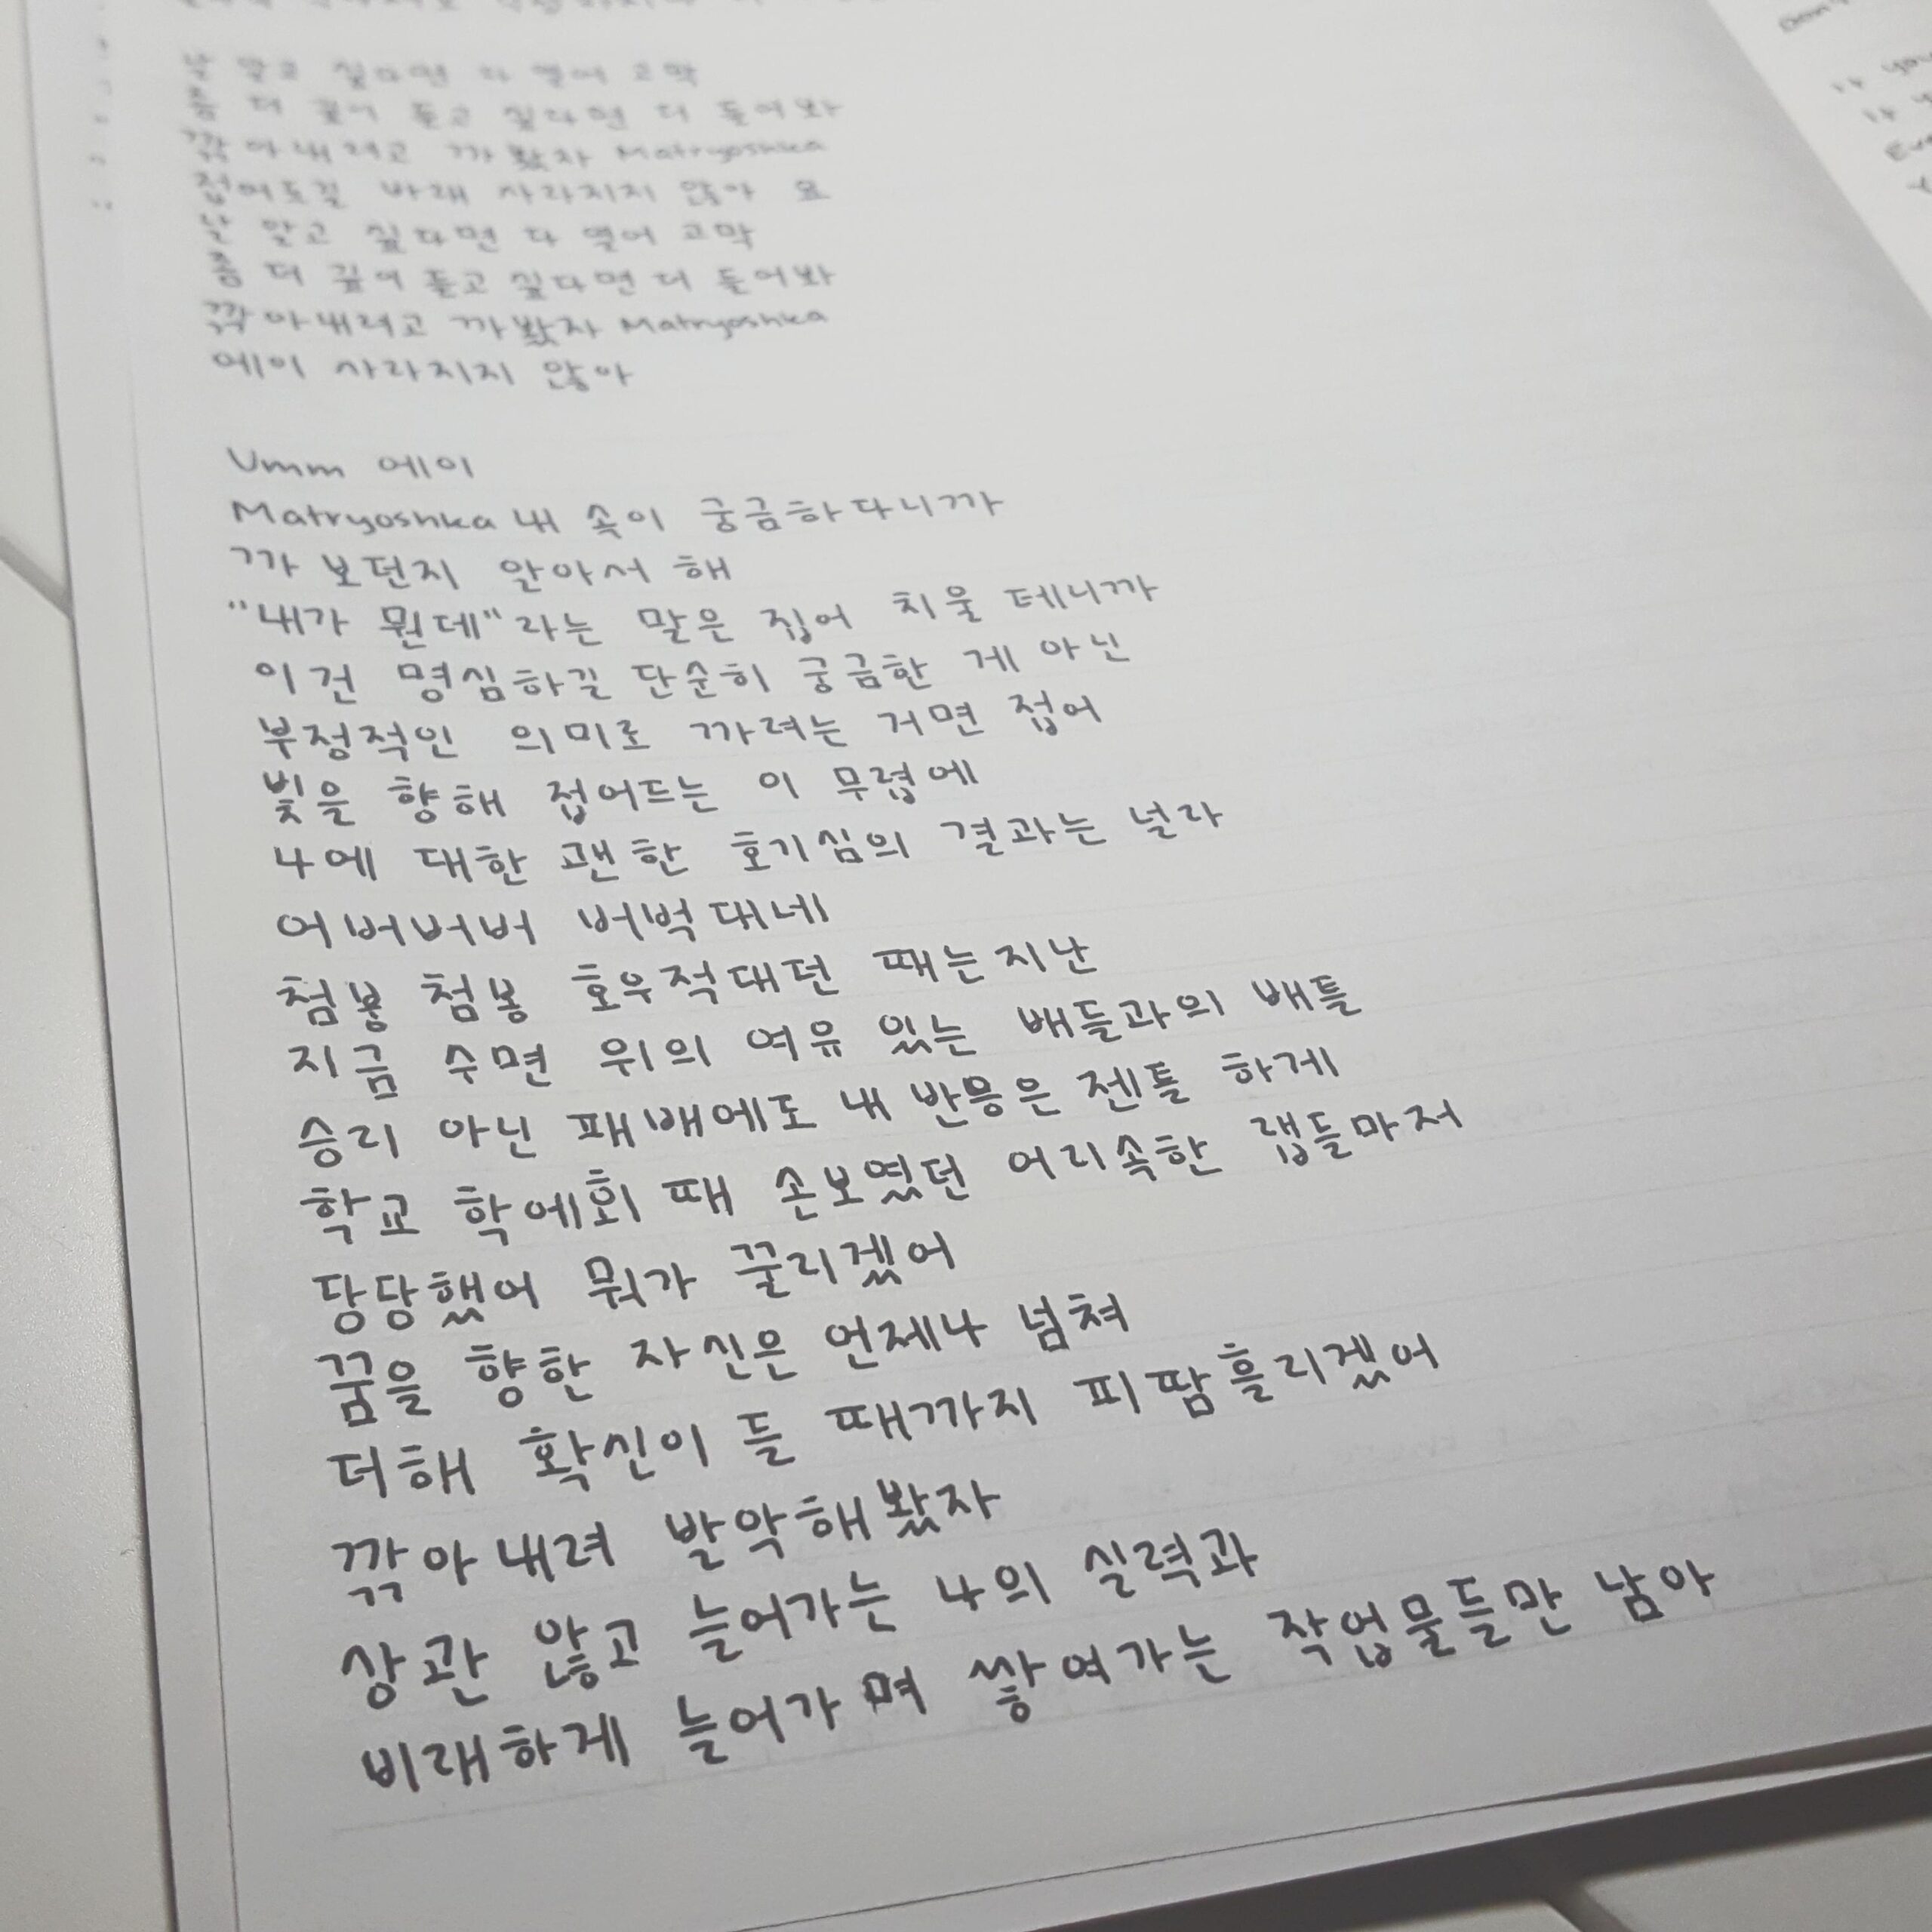 날 알고 싶다면 다 열어 고막
좀 더 깊이 듣고 싶다면 더 들어봐
깎아내려고 까봤자 Matryoshka
접어두길 바래 사라지지 않아 요
날 알고 싶다면 다 열어 고막
좀 더 깊이 듣고 싶다면 더 들어봐
깎아내려고 까봤자 Matryoshka
에이 사라지지 않아
Umm 에이
Matryoshka 내 속이 궁금하다니까
까 보던지 알아서 해
"내가 뭔데"라는 말은 집어 치울 테니까
이건 명심하길 단순히 궁금한 게 아닌
부정적인 의미로 까려는 거면 접어
빛을 향해 접어드는 이 무렵에
나에 대한 괜한 호기심의 결과는 널라
어버버버 버벅대네
첨봉 첨봉 호우적대던 때는지난
지금 수면 위의 여유 있는 배들과의 배틀
승리 아닌 패배에도 내 반응은 젠틀 하게
학교 학예회 때 손보였던 어리속한 랩들마저
당당했어 뭐가 꿀리겠어
꿈을 향한 자신은 언제나 넘쳐
더해 확신이 들 때까지 피땀흘리겠어
깎아내려 발악해봤자
상관 않고 늘어가는 나의 실력과
비래하게 늘어가며 쌓여가는 작업물들만 남아